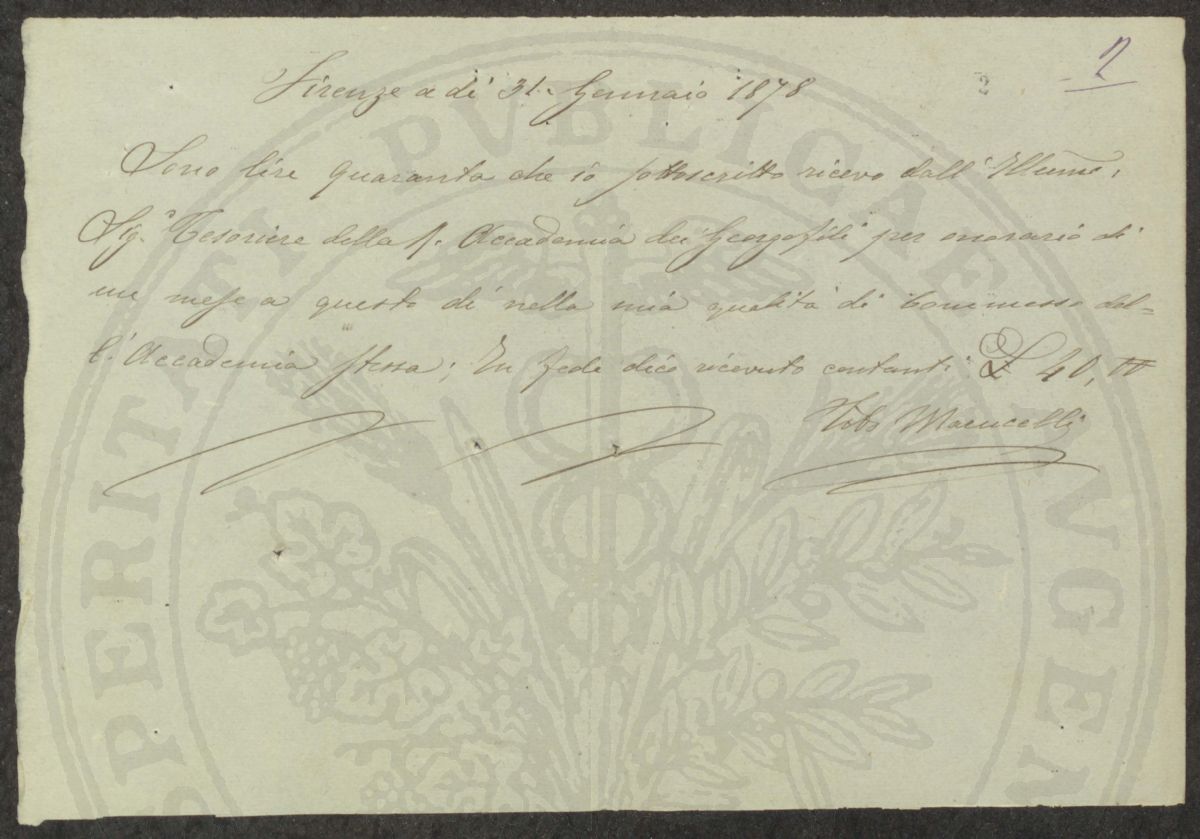 2
2
Firenze a di 31. Gennaio 1878
Sono lire quaranta che io sottoscritto ricevo dall' Illumo,
Sigr Tesoriere della R. Accademia dei Georgofili per onorario di
un mese a questo dì nella mia qualità di Commesso del=
l'Accademia stessa; In fede dico ricevuto contanti £ 40,00
Macucelli
PROSPERITATI PVBLICAE AVGEN